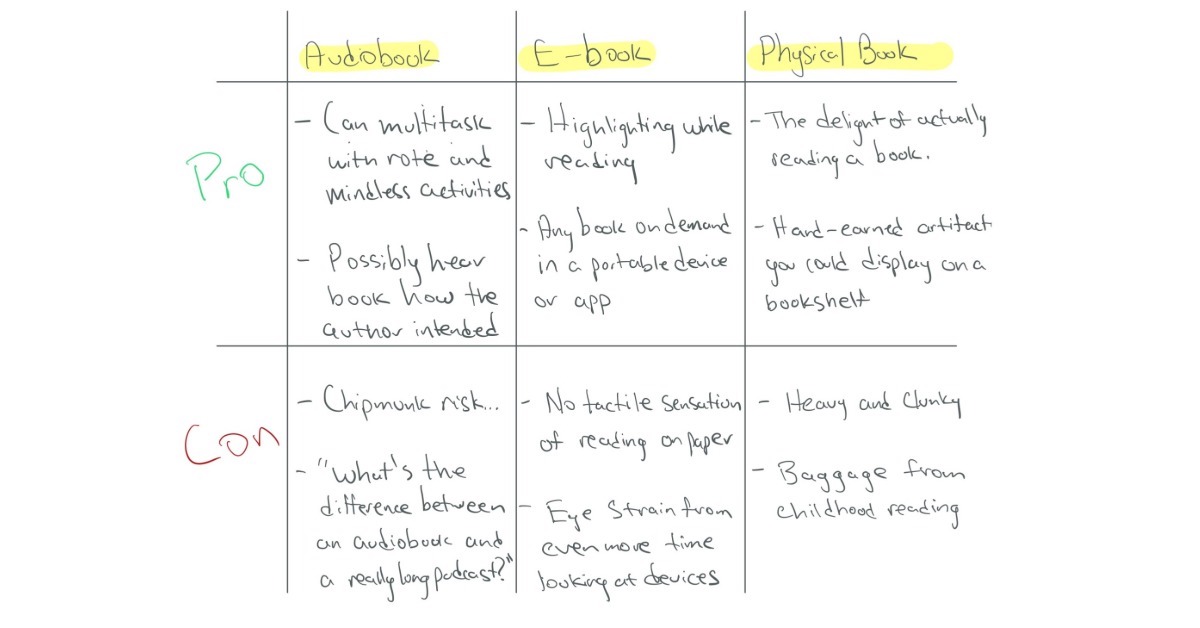 Audiobook
E-book
Physical Book
Pro
- Can multitask
with rote and
mindless activities
- Possibly hear
book how the
author intended
- Highlighting while
reading
- Any book on demand
in a portable device
or app
- The delight of actually
reading a book.
- Hard-earned artifact
you could display on a
bookshelf
Con
- Chipmunk risk...
- "What's the
difference between
an audiobook and
a really long podcast?"
- No tactile sensation
of reading on paper
- Eye Strain from
even more time
looking at devices
- Heavy and Clunky
- Baggage from
childhood reading